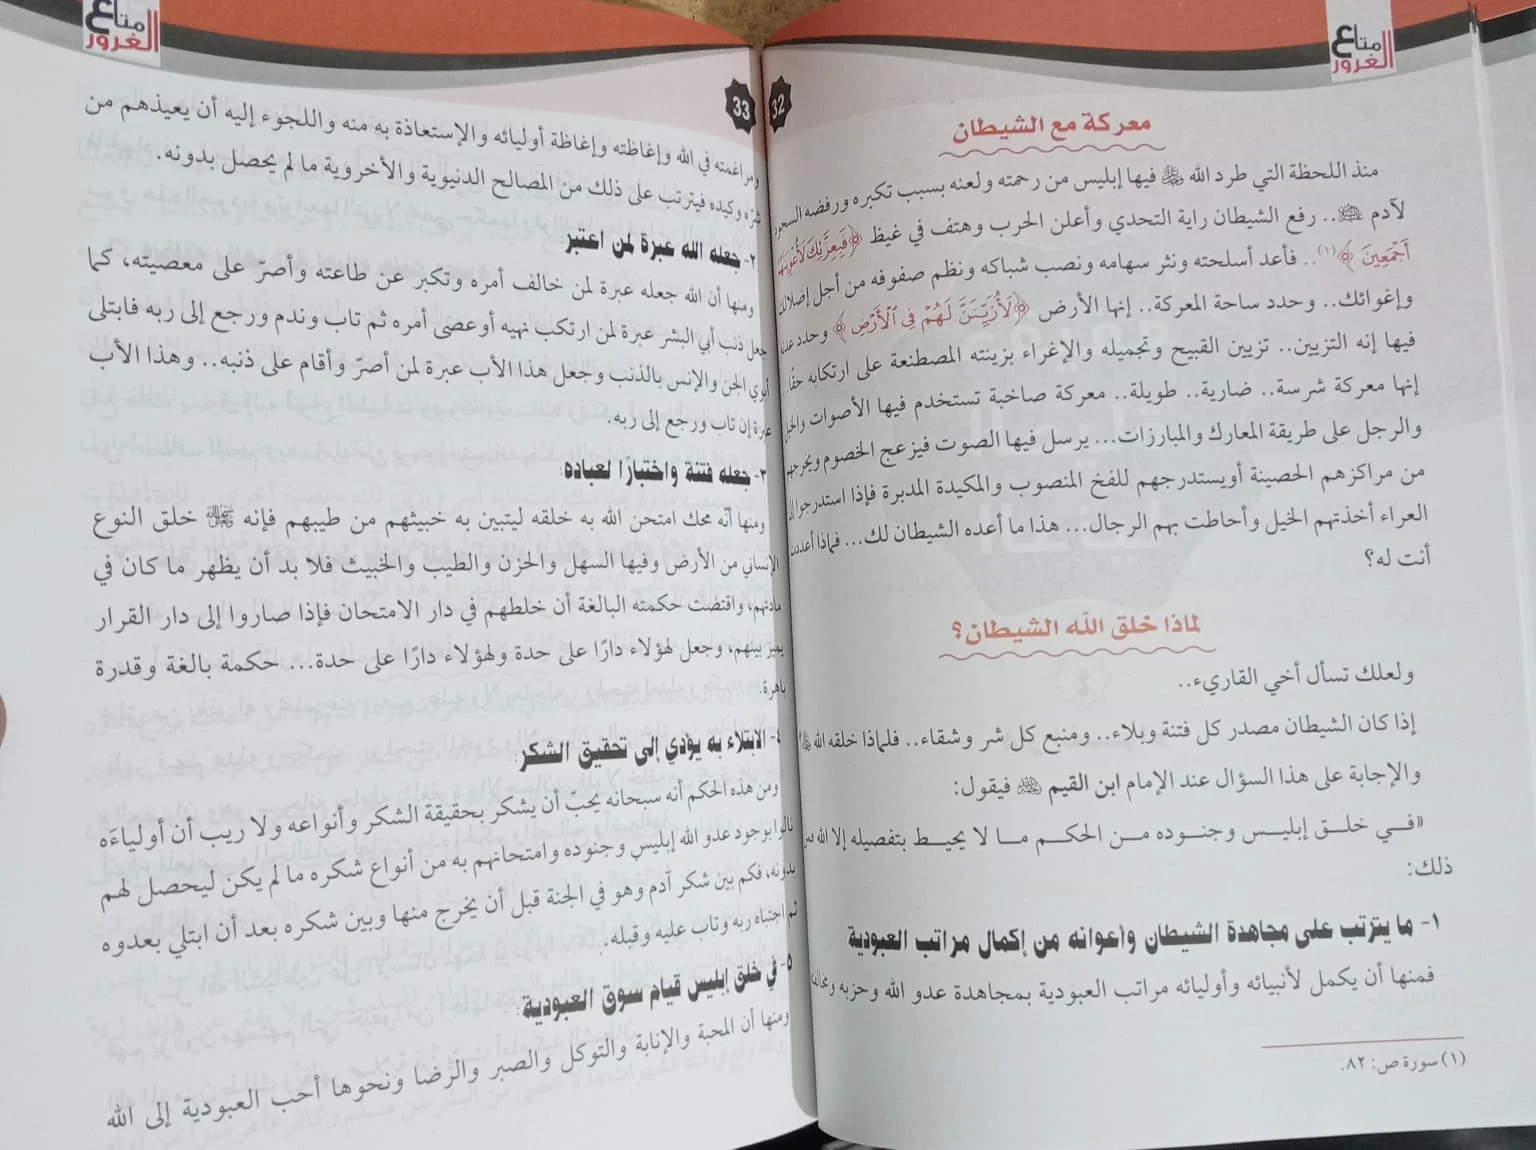 متاع الغرور
32
معركة مع الشيطان
منذ اللحظة التي طرد الله ﷻ فيها إبليس من رحمته ولعنه بسبب تكبره ورفضه السجود
لآدم ﷺ.. رفع الشيطان راية التحدي وأعلن الحرب وهتف في غيظ ﴿فَبِعِزَّتِكَ لَأُغْوِيَنَّهُمْ
أَجْمَعِينَ﴾(١).. فأعد أسلحته ونثر سهامه ونصب شباكه ونظم صفوفه من أجل إضلالك
وإغوائك.. وحدد ساحة المعركة.. إنها الأرض ﴿لَأُزَيِّنَنَّ لَهُمْ فِي الْأَرْضِ﴾ وحدد
فيها إنه التزيين.. تزيين القبيح وتجميله والإغراء بزينته المصطنعة على ارتكابه حقًا..
إنها معركة شرسة.. ضارية.. طويلة.. معركة صاخبة تستخدم فيها الأصوات والخيل
والرجل على طريقة المعارك والمبارزات... يرسل فيها الصوت فيزعج الخصوم ويخرجهم
من مراكزهم الحصينة أويستدرجهم للفخ المنصوب والمكيدة المدبرة فإذا استدرجوا إلى
العراء أخذتهم الخيل وأحاطت بهم الرجال... هذا ما أعده الشيطان لك... فماذا أعددت
أنت له؟
لماذا خلق الله الشيطان؟
ولعلك تسأل أخي القاريء..
إذا كان الشيطان مصدر كل فتنة وبلاء.. ومنبع كل شر وشقاء.. فلماذا خلقه الله
والإجابة على هذا السؤال عند الإمام ابن القيم ﵀ فيقول:
«في خلق إبليس وجنوده من الحكم ما لا يحيط بتفصيله إلا الله فمن
ذلك:
١- ما يترتب على مجاهدة الشيطان وأعوانه من إكمال مراتب العبودية
فمنها أن يكمل لأنبيائه وأوليائه مراتب العبودية بمجاهدة عدو الله وحزبه ومخالفته
(١) سورة ص: ٨٢.
متاع الغرور
33
ومراغمته في الله وإغاظته وإغاظة أوليائه والإستعاذة به منه واللجوء إليه أن يعيذهم من
شره وكيده فيترتب على ذلك من المصالح الدنيوية والأخروية ما لم يحصل بدونه.
٢- جعله الله عبرة لمن اعتبر:
ومنها أن الله جعله عبرة لمن خالف أمره وتكبر عن طاعته وأصرّ على معصيته، كما
جعل ذنب أبي البشر عبرة لمن ارتكب نهيه أوعصى أمره ثم تاب وندم ورجع إلى ربه فابتلى
أبوي الجن والإنس بالذنب وجعل هذا الأب عبرة لمن أصرّ وأقام على ذنبه.. وهذا الأب
عبرة إن تاب ورجع إلى ربه.
٣- جعله فتنة واختبارًا لعباده:
ومنها أنّه محك امتحن الله به خلقه ليتبين به خبيثهم من طيبهم فإنه ﷻ خلق النوع
الإنساني من الأرض وفيها السهل والحزن والطيب والخبيث فلا بد أن يظهر ما كان في
مادتهم، واقتضت حكمته البالغة أن خلطهم في دار الامتحان فإذا صاروا إلى دار القرار
يميز بينهم، وجعل لهؤلاء دارًا على حدة ولهؤلاء دارًا على حدة... حكمة بالغة وقدرة
باهرة.
٤- الابتلاء به يؤدي إلى تحقيق الشكر:
ومن هذه الحكم أنه سبحانه يحبّ أن يشكر بحقيقة الشكر وأنواعه ولا ريب أن أولياءَه
نالوا بوجود عدو الله إبليس وجنوده وامتحانهم به من أنواع شكره ما لم يكن ليحصل لهم
بدونه، فكم بين شكر آدم وهو في الجنة قبل أن يخرج منها وبين شكره بعد أن ابتلي بعدوه
ثم اجتباه ربه وتاب عليه وقبله.
٥- في خلق إبليس قيام سوق العبودية:
ومنها أن المحبة والإنابة والتوكل والصبر والرضا ونحوها أحب العبودية إلى الله